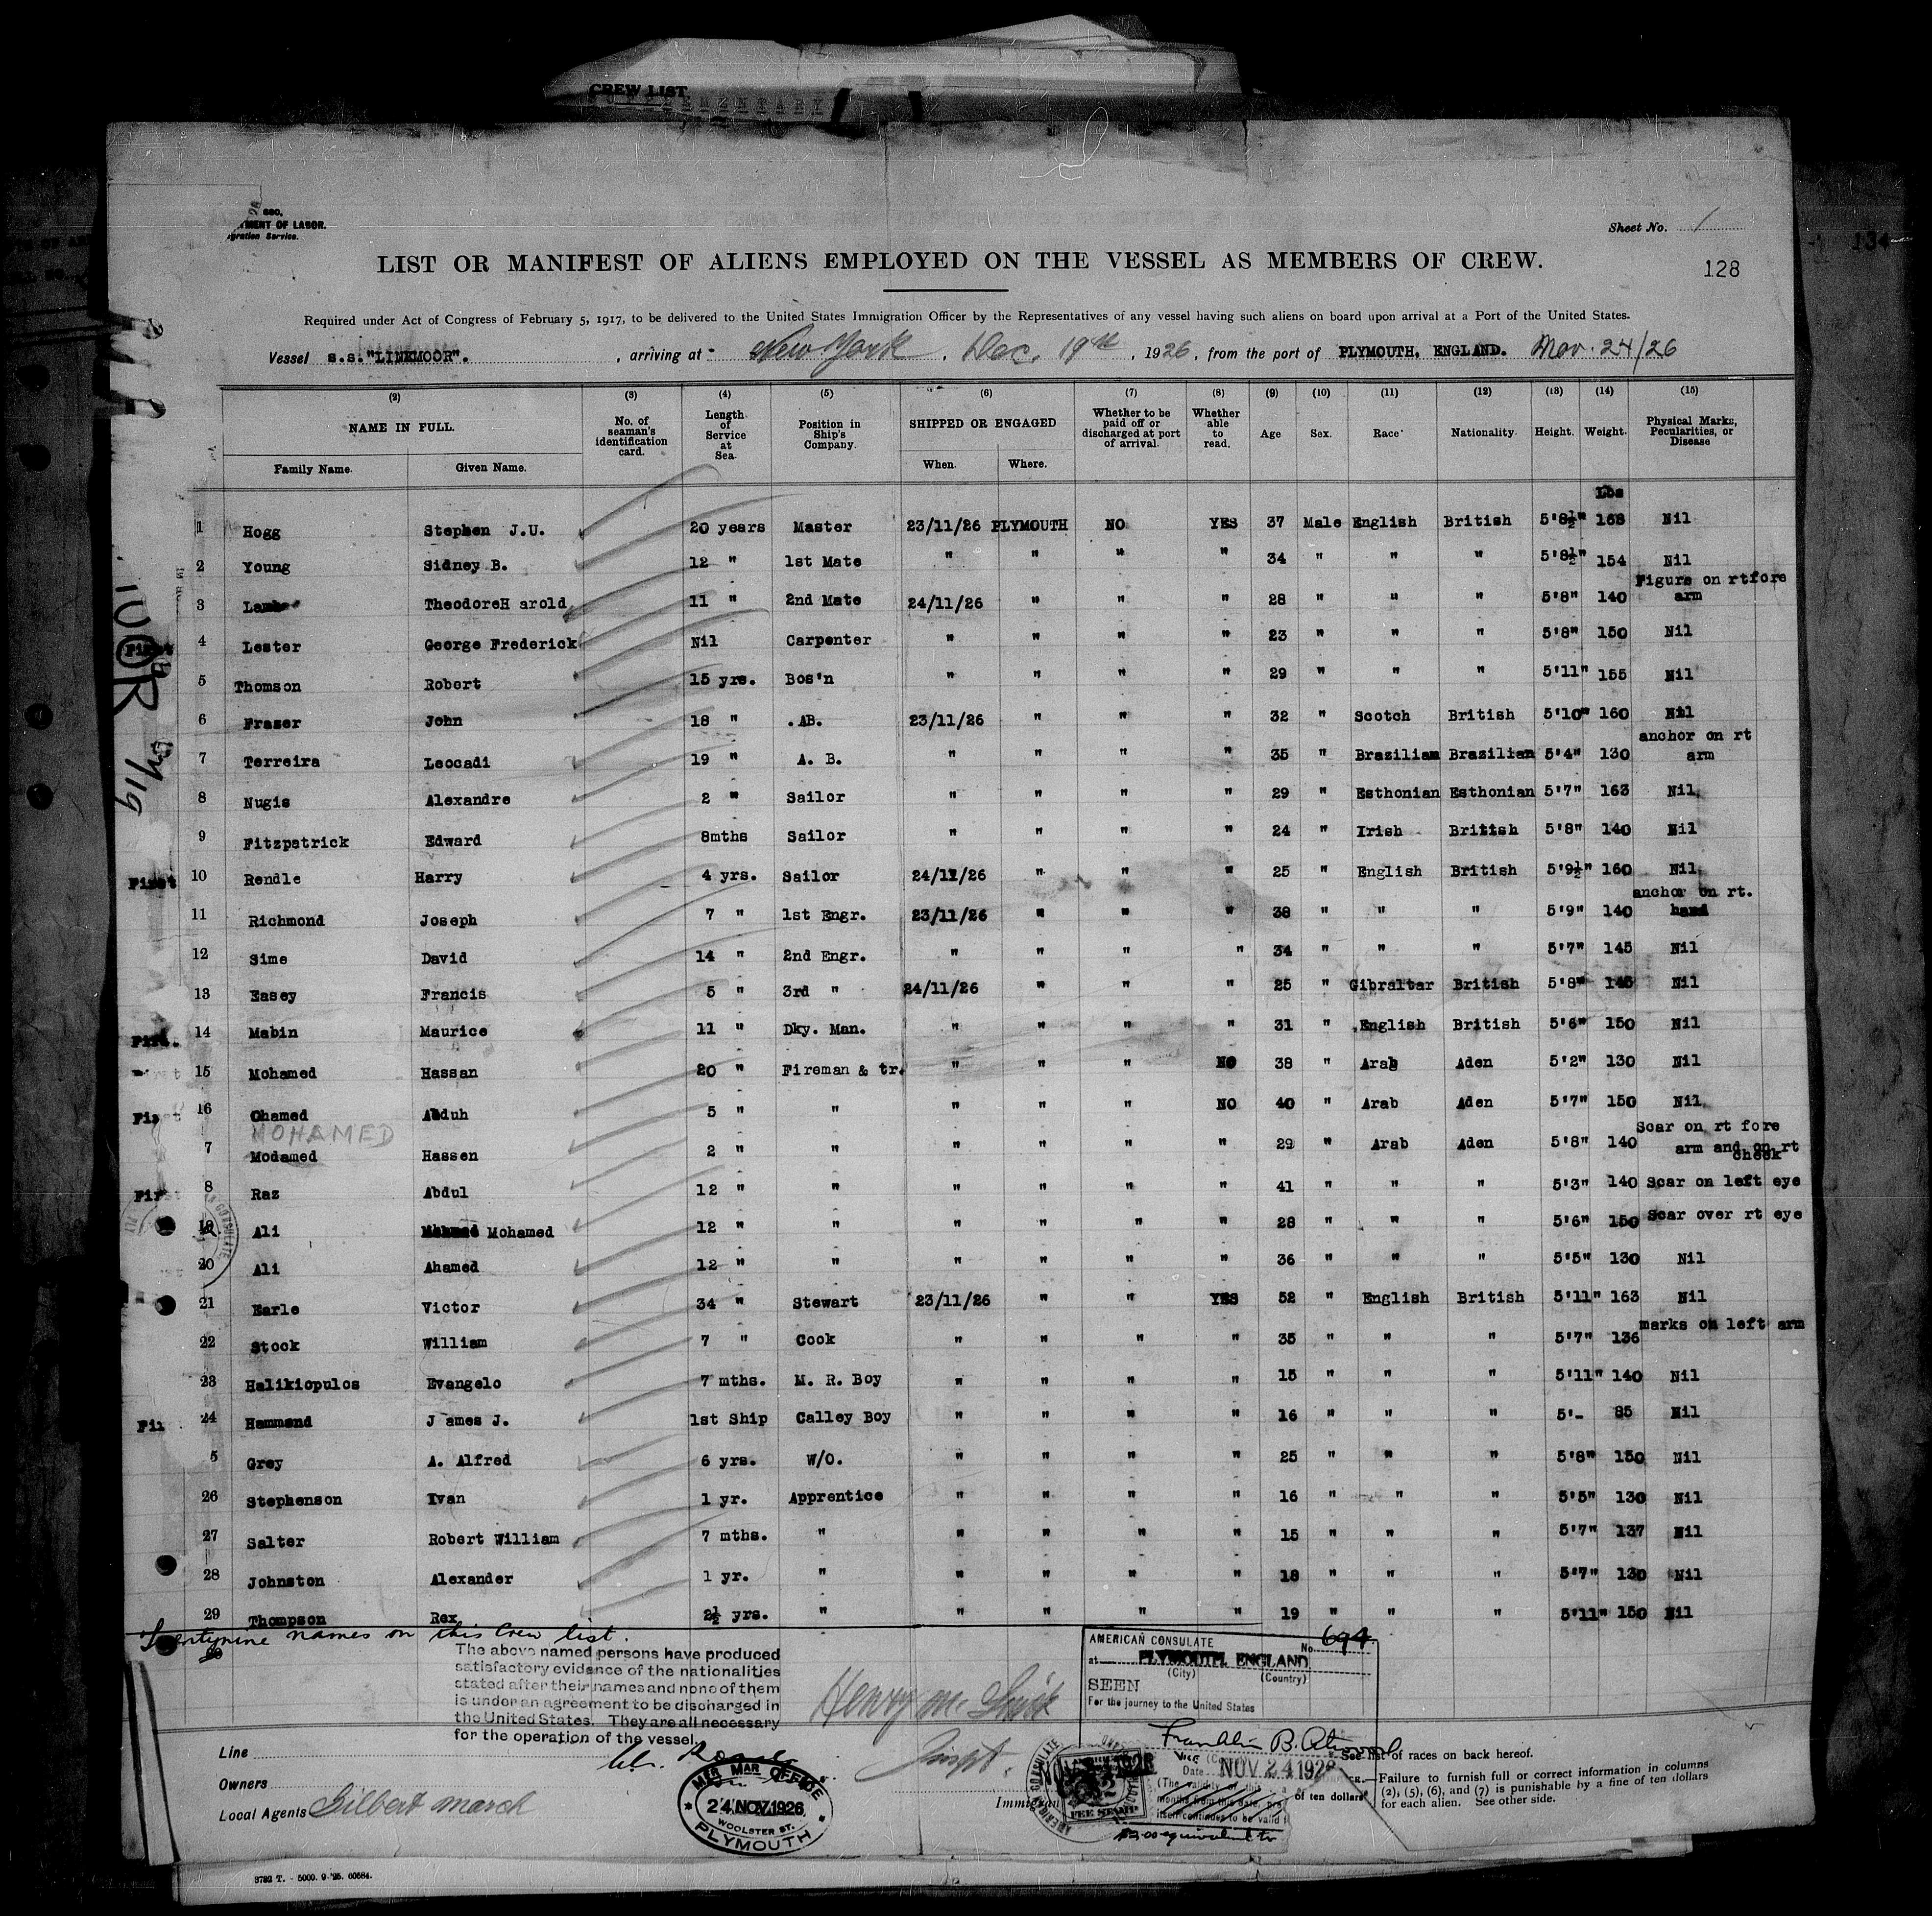 CREW LIST
SUPPLEMENTARY
680,
TMENT OF LABOR.
gration Service.
Sheet No. 1
134
LIST OR MANIFEST OF ALIENS EMPLOYED ON THE VESSEL AS MEMBERS OF CREW.
128
Required under Act of Congress of February 5, 1917, to be delivered to the United States Immigration Officer by the Representatives of any vessel having such aliens on board upon arrival at a Port of the United States.
Vessel s.s."LINKMOOR". , arriving at New York , Dec. 19th , 1926, from the port of PLYMOUTH, ENGLAND. Nov. 24/26
(2) (3) (4) (5) (6) (7) (8) (9) (10) (11) (12) (13) (14) (15)
NAME IN FULL. Family Name. Given Name. No. of seaman's identification card. Length of Service at Sea. Position in Ship's Company. SHIPPED OR ENGAGED When. Where. Whether to be paid off or discharged at port of arrival. Whether able to read. Age Sex. Race Nationality. Height. Weight. Physical Marks, Pecularities, or Disease
Lbs
1 Hogg Stephen J.U. 20 years Master 23/11/26 PLYMOUTH NO YES 37 Male English British 5'8½" 168 Nil
2 Young Sidney B. 12 " 1st Mate " " " " 34 " " " 5'8½" 154 Nil
3 Lamb TheodoreH arold 11 " 2nd Mate 24/11/26 " " " 28 " " " 5'8" 140 Figure on rtfore arm
First 4 Lester George Frederick Nil Carpenter " " " " 23 " " " 5'8" 150 Nil
5 Thomson Robert 15 yrs. Bos'n " " " " 29 " " " 5'11" 155 Nil
6 Fraser John 18 " .AB. 23/11/26 " " " 32 " Scotch British 5'10" 160 Nil
7 Terreira Leocadi 19 " A. B. " " " " 35 " Brazilian Brazilian 5'4" 130 anchor on rt arm
8 Nugis Alexandre 2 " Sailor " " " " 29 " Esthonian Esthonian 5'7" 163 Nil
9 Fitzpatrick Edward 8mths Sailor " " " " 24 " Irish British 5'8" 140 Nil
First 10 Rendle Harry 4 yrs. Sailor 24/11/26 " " " 25 " English British 5'9½" 160 Nil
11 Richmond Joseph 7 " 1st Engr. 23/11/26 " " " 38 " " " 5'9" 140 anchor on rt. hand
12 Sime David 14 " 2nd Engr. " " " " 34 " " " 5'7" 145 Nil
13 Easey Francis 5 " 3rd " 24/11/26 " " " 25 " Gibraltar British 5'8" 145 Nil
14 Mabin Maurice 11 " Dky. Man. " " " " 31 " English British 5'6" 150 Nil
15 Mohamed Hassan 20 " Fireman & tr. " " " NO 38 " Arab Aden 5'2" 130 Nil
First 16 Ohamed Abduh 5 " " " " " NO 40 " Arab Aden 5'7" 150 Nil
MOHAMED
7 Modamed Hassen 2 " " " " " " 29 " Arab Aden 5'8" 140 Scar on rt fore arm and on rt cheek
First 8 Raz Abdul 12 " " " " " " 41 " " " 5'3" 140 Scar on left eye
19 Ali Mohamed 12 " " " " " " 28 " " " 5'6" 150 Scar over rt eye
20 Ali Ahamed 12 " " " " " " 36 " " " 5'5" 130 Nil
21 Earle Victor 34 " Stewart 23/11/26 " " YES 52 " English British 5'11" 163 Nil
22 Stock William 7 " Cook " " " " 35 " " " 5'7" 136 marks on left arm
23 Halikiopulos Evangelo 7 mths. M. R. Boy " " " " 15 " " " 5'11" 140 Nil
24 Hammond J ames J. 1st Ship Calley Boy " " " " 16 " " " 5'- 85 Nil
5 Grey A. Alfred 6 yrs. W/O. " " " " 25 " " " 5'8" 150 Nil
26 Stephenson Ivan 1 yr. Apprentice " " " " 16 " " " 5'5" 130 Nil
27 Salter Robert William 7 mths. " " " " " 15 " " " 5'7" 137 Nil
28 Johnston Alexander 1 yr. " " " " " 18 " " " 5'7" 130 Nil
29 Thompson Rex 2½ yrs. " " " " " 19 " " " 5'11" 150 Nil
Twentynine names on this Crew list.
30
The above named persons have produced
satisfactory evidence of the nationalities
stated after their names and none of them
is under an agreement to be discharged in
the United States. They are all necessary
for the operation of the vessel.
AMERICAN CONSULATE No. 694
at PLYMOUTH, ENGLAND
(City) (Country)
SEEN
For the journey to the United States
Franklin B. Atwood
Vice
Date NOV 24 1926
(The validity of this
months from this date,
itself continues to be valid
$2.00 equivalent to
Line
Owners
Local Agents Gilbert March
MER MAR OFFICE
24 NOV 1926
WOOLSTER ST.
PLYMOUTH
AMERICAN CONSULATE
FEE STAMP
See list of races on back hereof.
Failure to furnish full or correct information in columns
(2), (5), (6), and (7) is punishable by a fine of ten dollars
for each alien. See other side.
of ten dollars
3792 T. - 5000. 9-'25. 60584.